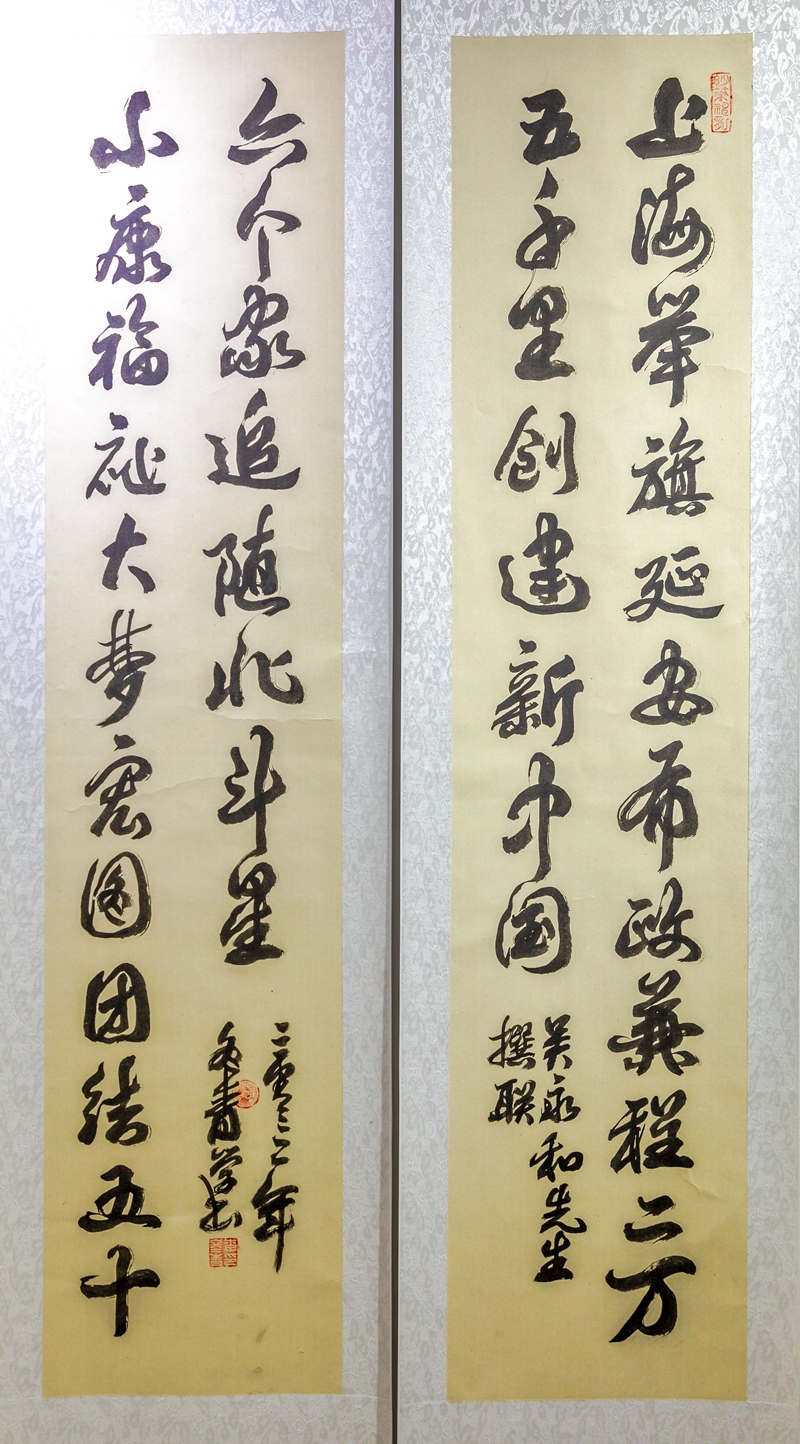 上海举旗延安布政兼程二万
五千里创建新中国
吴永和先生
撰联
小康福祉大梦宏图团结五十
六个家追随北斗星
二零二二年
冬青学书